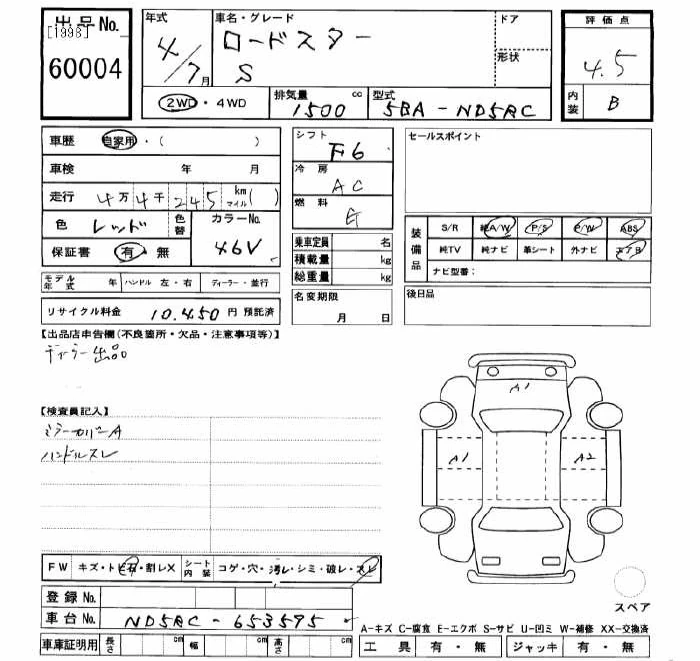 出品No.
[1998]
60004
年式 4/7月
車名・グレード
ロードスター
S
ドア
形状
2WD・4WD
排気量 1500 cc
型式 5BA-ND5RC
評価点
4.5
内装 B
車歴 自家用・( )
車検 年 月
走行 4万4千245 km マイル( )
色 レッド 色替
カラーNo. 46V
保証書 有・無
モデル年式 年 ハンドル 左・右 ディーラー・並行
リサイクル料金 10.450 円 預託済
シフト F6
冷房 AC
燃料
乗車定員 名
積載量 kg
総重量 kg
名変期限
月 日
セールスポイント
装備品
S/R 純A/W P/S P/W ABS
純TV 純ナビ 革シート 外ナビ エアB
ナビ型番:
後日品
【出品店申告欄(不良箇所・欠品・注意事項等)】
ディーラー出品
【検査員記入】
ミラーカバーA
ハンドルスレ
A1
A1
A2
スペア
FW キズ・トビ石・割レX シート内装 コゲ・穴・汚レ・シミ・破レ・スレ
登録No.
車台No. ND5RC-653595
車庫証明用 長さ cm 幅 cm 高さ cm
A-キズ C-腐食 E-エクボ S-サビ U-凹ミ W-補修 XX-交換済
工具 有・無 ジャッキ 有・無